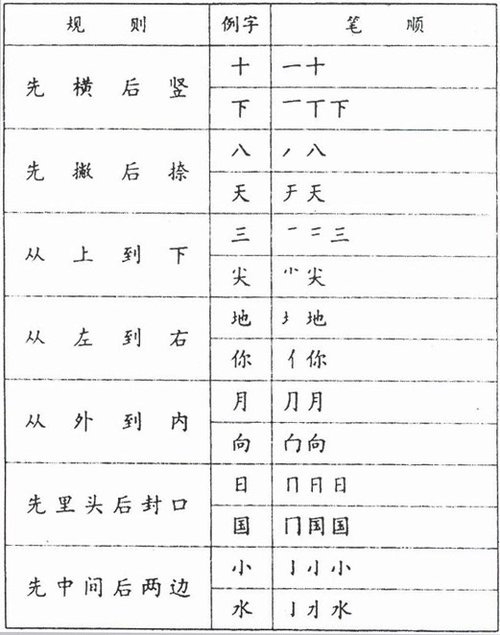 规则 例字 笔顺
先横后竖 十 一十
下 一丅下
先撇后捺 八 丿八
天 天
从上到下 三 一二三
尖 ⺌尖
从左到右 地 地
你 亻你
从外到内 月 ⺆月
向 向
先里头后封口 日 冂日
国 冂国
先中间后两边 小 亅小
水 亅水